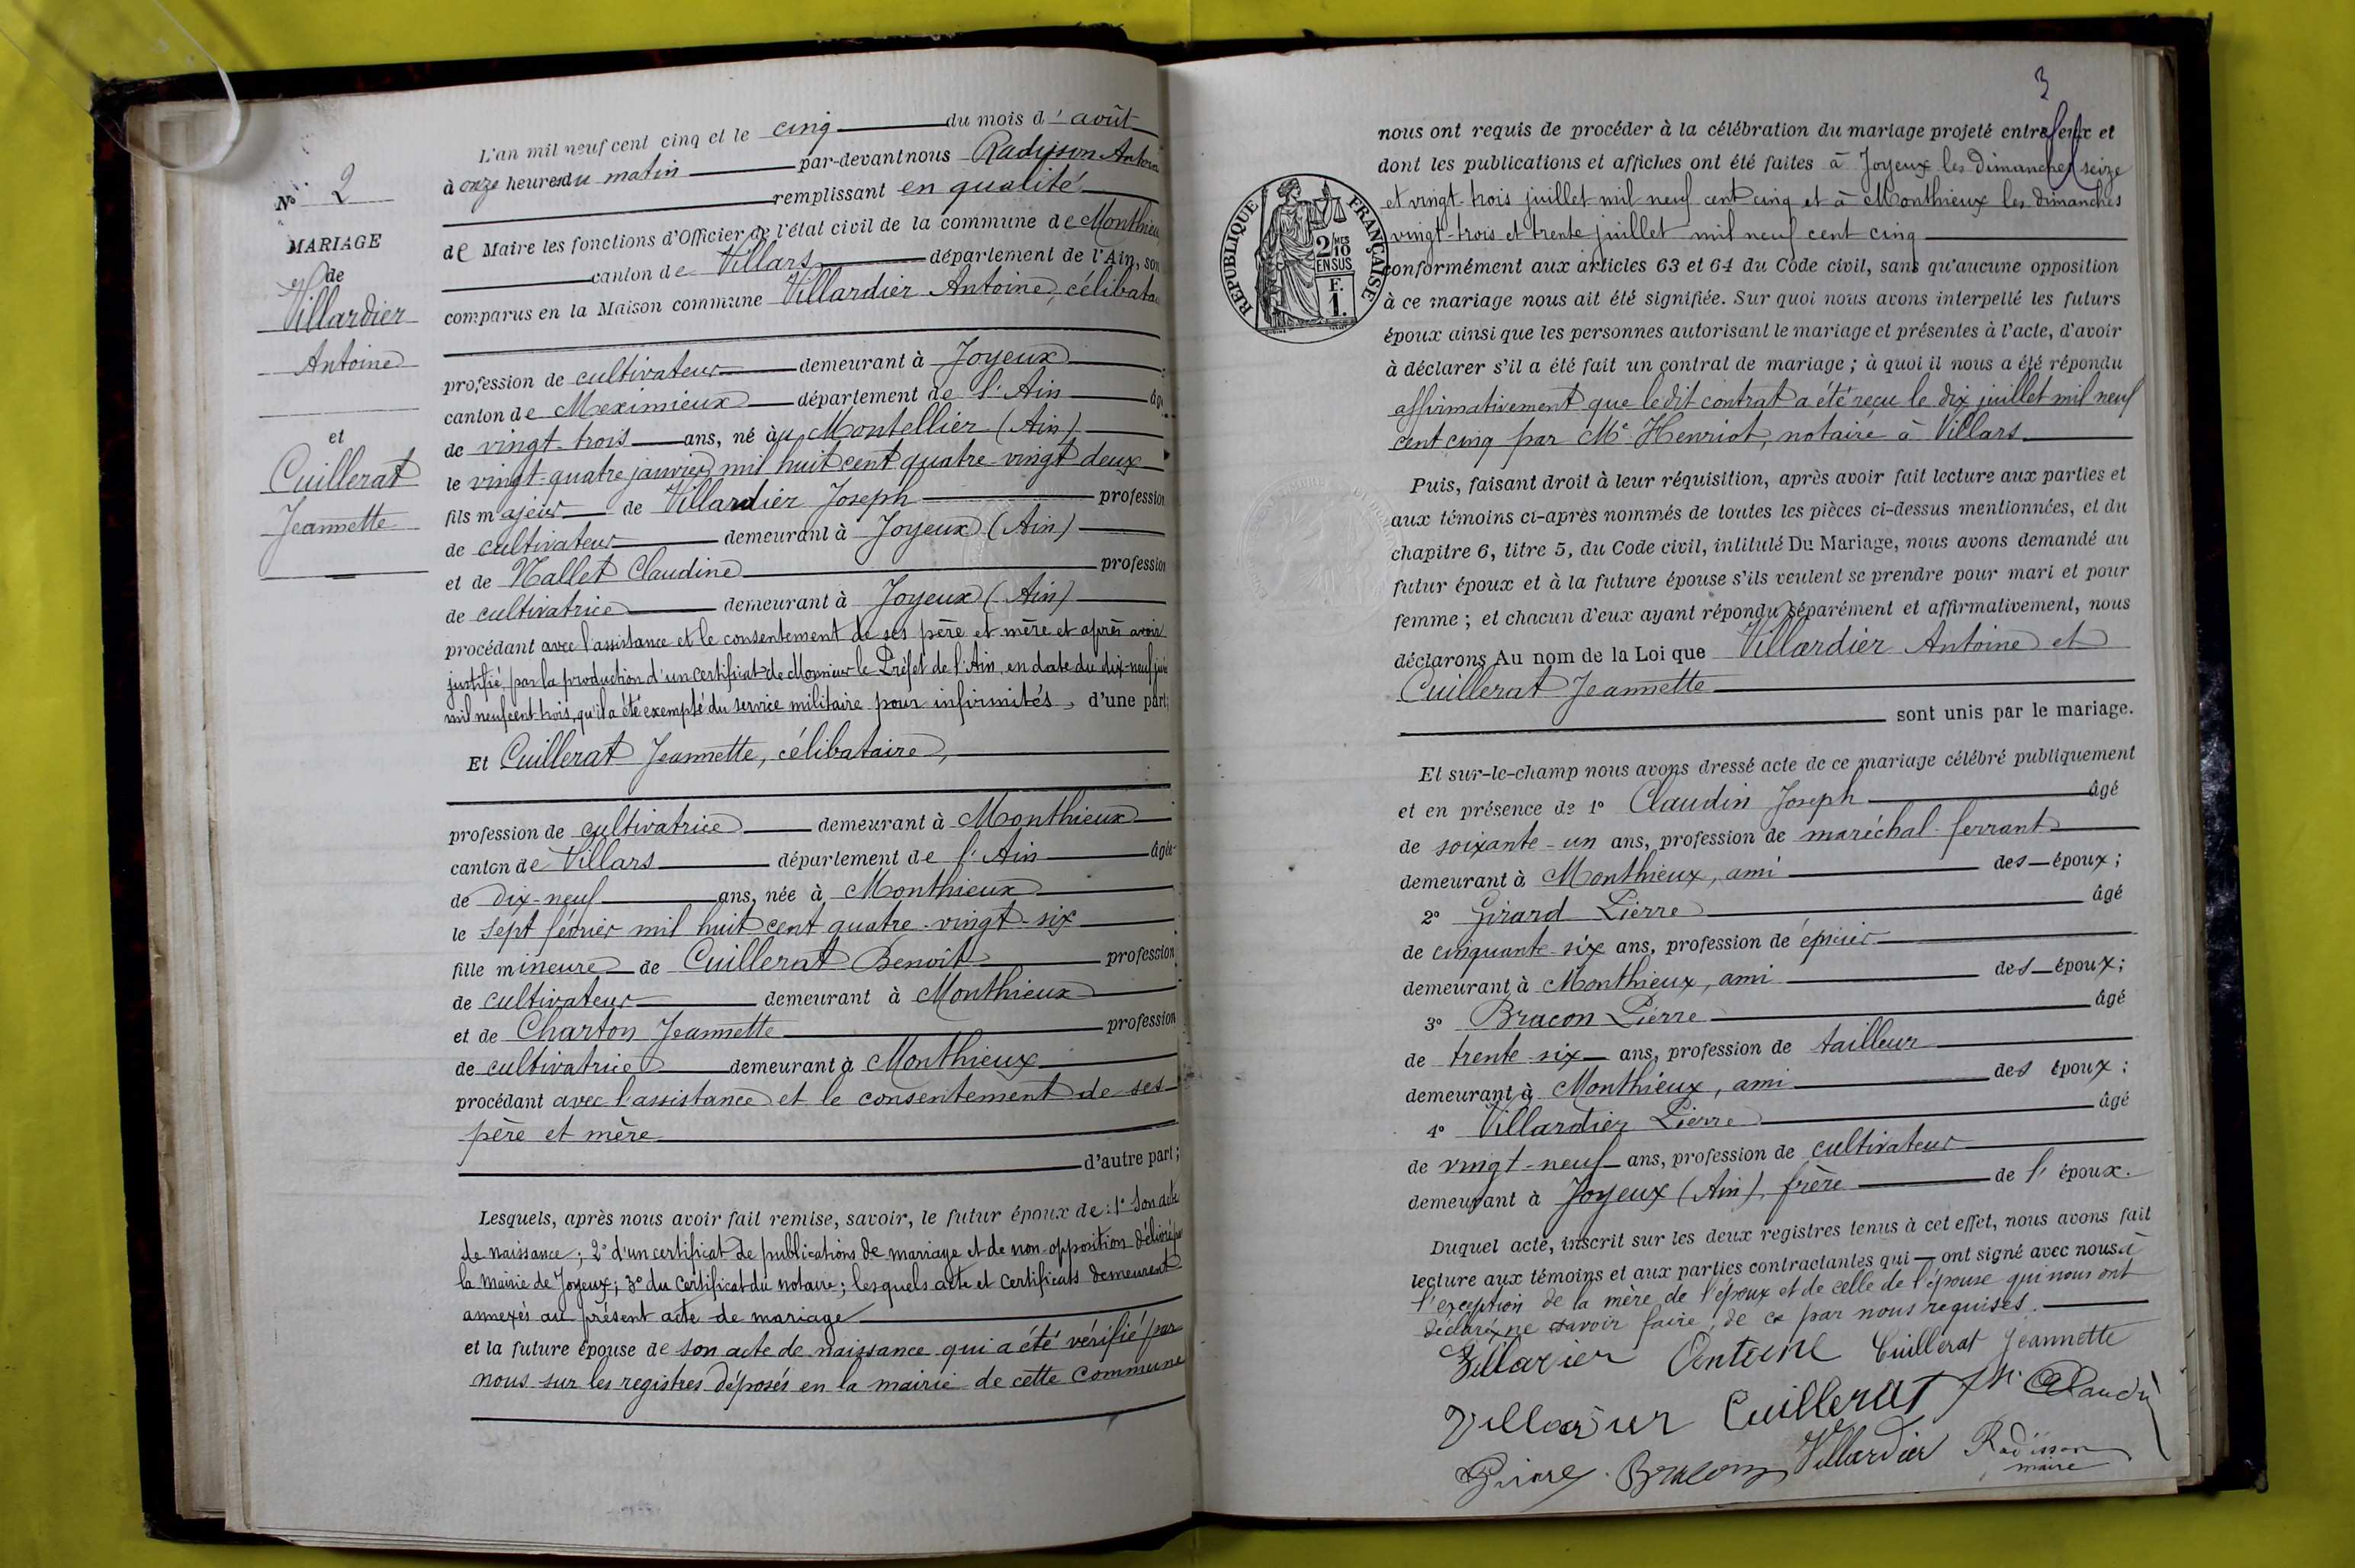 N° 2
MARIAGE
de
Villardier
Antoine
et
Cuillerat
Jeannette
L'an mil neuf cent cinq et le cinq du mois d'août
à onze heures du matin par-devant nous Radisson Antoine
remplissant en qualité
de Maire les fonctions d'Officier de l'état civil de la commune de Monthieux
canton de Villars département de l'Ain, son
comparus en la Maison commune Villardier Antoine, célibata
profession de cultivateur demeurant à Joyeux
canton de Meximieux département de l'Ain âg
de vingt-trois ans, né au Montellier (Ain)
le vingt-quatre janvier mil huit cent quatre-vingt deux
fils majeur de Villardier Joseph profession
de cultivateur demeurant à Joyeux (Ain)
et de Nallet Claudine profession
de cultivatrice demeurant à Joyeux (Ain)
procédant avec l'assistance et le consentement de ses père et mère et après avoir
justifié, par la production d'un certificat de Monsieur le Préfet de l'Ain, en date du dix-neuf juin
mil neuf cent trois, qu'il a été exempté du service militaire pour infirmités, d'une part;
Et Cuillerat Jeannette, célibataire,
profession de cultivatrice demeurant à Monthieux
canton de Villars département de l'Ain âgée
de dix-neuf ans, née à Monthieux
le sept février mil huit cent quatre-vingt-six
fille mineure de Cuillerat Benoît profession
de cultivateur demeurant à Monthieux
et de Charton Jeannette profession
de cultivatrice demeurant à Monthieux
procédant avec l'assistance et le consentement de ses
père et mère
d'autre part;
Lesquels, après nous avoir fait remise, savoir, le futur époux de: 1° Son acte
de naissance; 2° d'un certificat de publications de mariage et de non-opposition délivré par
la mairie de Joyeux; 3° du certificat du notaire; lesquels acte et certificats demeurent
annexés au présent acte de mariage
et la future épouse de son acte de naissance qui a été vérifié par
nous sur les registres déposés en la mairie de cette commune
3
nous ont requis de procéder à la célébration du mariage projeté entre eux et
dont les publications et affiches ont été faites à Joyeux les dimanches seize
et vingt-trois juillet mil neuf cent cinq et à Monthieux les dimanches
vingt-trois et trente juillet mil neuf cent cinq
conformément aux articles 63 et 64 du Code civil, sans qu'aucune opposition
à ce mariage nous ait été signifiée. Sur quoi nous avons interpellé les futurs
époux ainsi que les personnes autorisant le mariage et présentes à l'acte, d'avoir
à déclarer s'il a été fait un contrat de mariage; à quoi il nous a été répondu
affirmativement que ledit contrat a été reçu le dix juillet mil neuf
cent cinq par Me Henriot, notaire à Villars.
RÉPUBLIQUE FRANÇAISE
2/MES
10
EN SUS
F.
1.
Puis, faisant droit à leur réquisition, après avoir fait lecture aux parties et
aux témoins ci-après nommés de toutes les pièces ci-dessus mentionnées, et du
chapitre 6, titre 5, du Code civil, intitulé Du Mariage, nous avons demandé au
futur époux et à la future épouse s'ils veulent se prendre pour mari et pour
femme; et chacun d'eux ayant répondu séparément et affirmativement, nous
déclarons Au nom de la Loi que Villardier Antoine et
Cuillerat Jeannette
sont unis par le mariage.
Et sur-le-champ nous avons dressé acte de ce mariage célébré publiquement
et en présence de 1° Claudin Joseph âgé
de soixante-un ans, profession de maréchal-ferrant
demeurant à Monthieux, ami des époux;
2° Girard Pierre âgé
de cinquante-six ans, profession de épicier
demeurant à Monthieux, ami des époux;
3° Bracon Pierre âgé
de trente-six ans, profession de tailleur
demeurant à Monthieux, ami des époux;
4° Villardier Pierre âgé
de vingt-neuf ans, profession de cultivateur
demeurant à Joyeux (Ain), frère de l'époux.
Duquel acte, inscrit sur les deux registres tenus à cet effet, nous avons fait
lecture aux témoins et aux parties contractantes qui ont signé avec nous à
l'exception de la mère de l'époux et de celle de l'épouse qui nous ont
déclaré ne savoir faire, de ce par nous requises.
Villarier Antoine Cuillerat Jeannette
Cuillerat Claudin
Bracon Villardier Radisson
maire